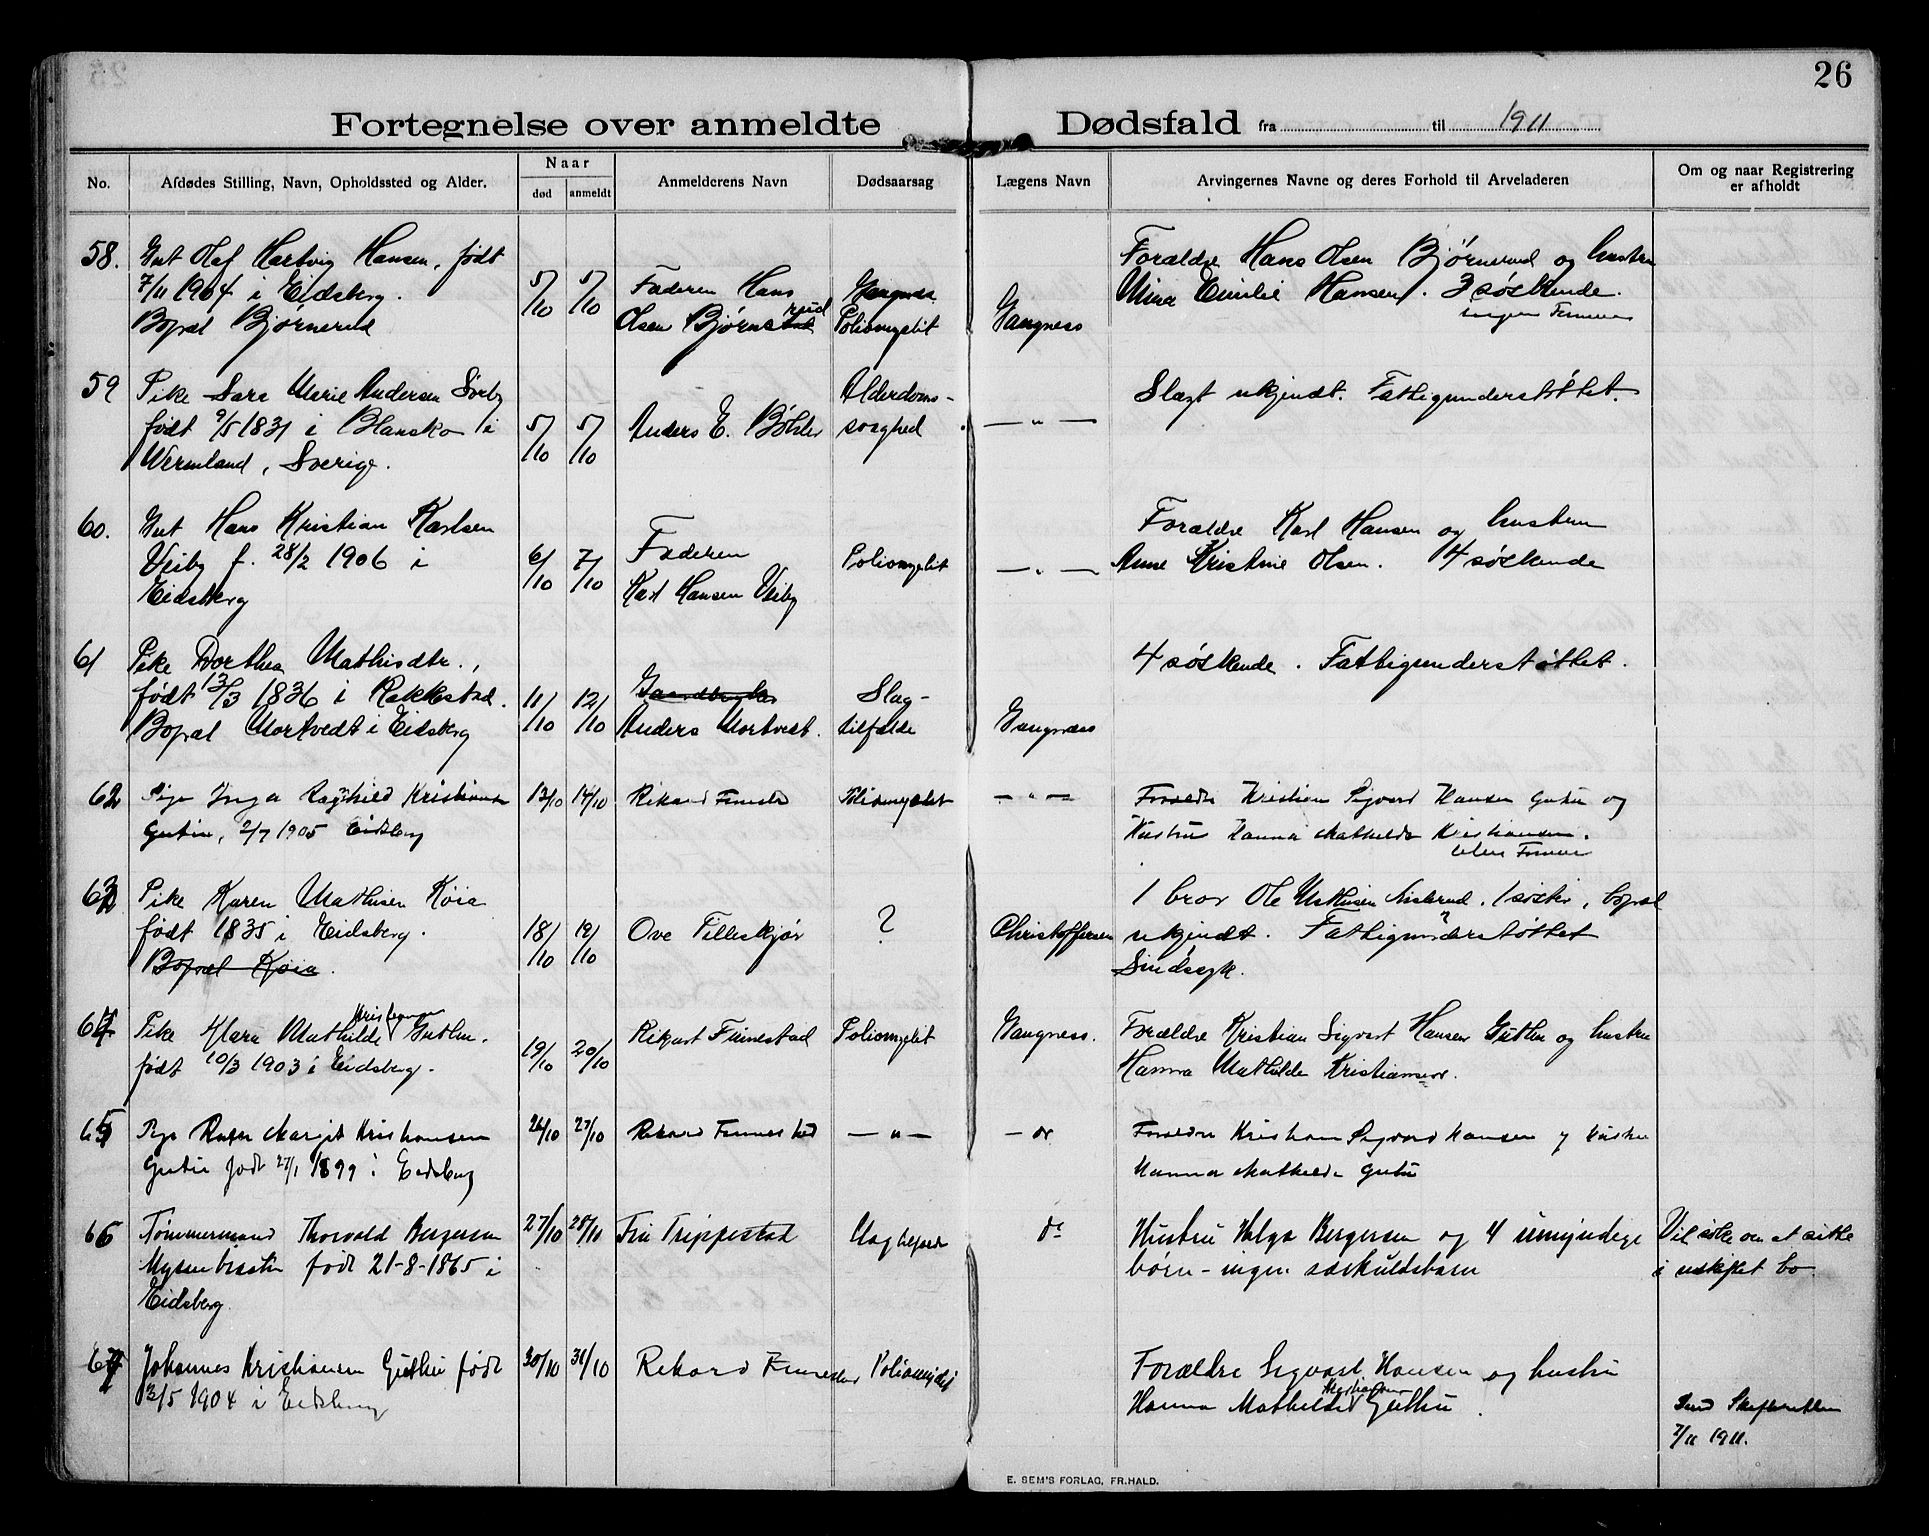 26
Fortegnelse over anmeldte Dødsfald fra til 1911
No.
Afdødes Stilling, Navn, Opholdssted og Alder.
Naar
død
anmeldt
Anmelderens Navn
Dødsaarsag
Lægens Navn
Arvingernes Navne og deres Forhold til Arveladeren
Om og naar Registrering
er afholdt
58.
Gut Olaf Hartvig Hansen, født
7/11 1904 i Eidsberg.
Bopæl Bjørnerud
5/10
5/10
Faderen Hans
Olsen Bjørnerud
Poliomyelit
Gangnæss
Forældre Hans Olsen Bjørnerud og hustru
Mina Emilie Hansen. 3 søskende.
ingen Formue
59
Pike Sara Marie Andersen Sørby
født 9/5 1831 i Blansko i
Wermland, Sverige.
5/10
5/10
Anders E. Böhler
Alderdoms-
svaghed
— " —
Slægt ukjendt. Fattigunderstøttet.
60.
Gut Hans Kristian Karlsen
Veiby f. 28/2 1906 i
Eidsberg
6/10
7/10
Faderen
Karl Hansen Veiby
Poliomyelit
— " —
Forældre Karl Hansen og hustru
Anne Kristine Olsen. 4 søskende
61
Pike Dorthea Mathisdtr.,
født 13/3 1836 i Rakkestad.
Bopæl Mortvedt i Eidsberg
11/10
12/10
Anders Mortvedt.
Slag-
tilfælde
Gangnæss
4 søskende. Fattigunderstøttet.
62
Pige Inga Ragnhild Kristiansen
Gutu, 2/7 1905 Eidsberg
13/10
14/10
Rikard Finestad
Poliomyelit
— " —
Forældre Kristian Sigvard Hansen Gutu og
Hustru Hanna Mathilde Kristiansen.
uden Formue
63
Pike Karen Mathisen Köia
født 1835 i Eidsberg.
Bopæl Köia.
18/10
19/10
Ove Tilleskjør
?
Christoffersen
1 bror Ole Mathisen . 1 søster, bopæl
ukjendt. Fattigunderstøttet ?
Sindssyk.
64
Pike Klara Mathilde Kristiansen Guthu.
født 10/3 1903 i Eidsberg.
19/10
20/10
Rikart Finnestad
Poliomyelit
Gangness.
Forældre Kristian Sigvart Hansen Guthu og hustru
Hanna Mathilde Kristiansen.
65
Pige Margit Kristiansen
Gutu født 27/1 1899 i Eidsberg
26/10
27/10
Rikard Finnestad
— " —
Forældre Kristian Sigvard Hansen og Hustru
Hanna Mathilde Gutu
66
Tømmermand Thorvald Bergersen
Mysen født 21-8-1865 i
Eidsberg.
27/10
28/10
Fru Trippestad
do
Hustru Helga Bergersen og 4 umyndige
børn - ingen særkuldsbarn
Vil søke om at sitte
i uskiftet bo.
67
Johannes Kristiansen Guthu født
13/5 1904 i Eidsberg
30/10
31/10
Rikard Finnestad
Poliomyelit
Forældre Sigvart Hansen og hustru
Hanna Mathilde Kristiansen Guthu.
Send Skifteretten
7/11 1911.
E. SEM'S FORLAG, FR.HALD.